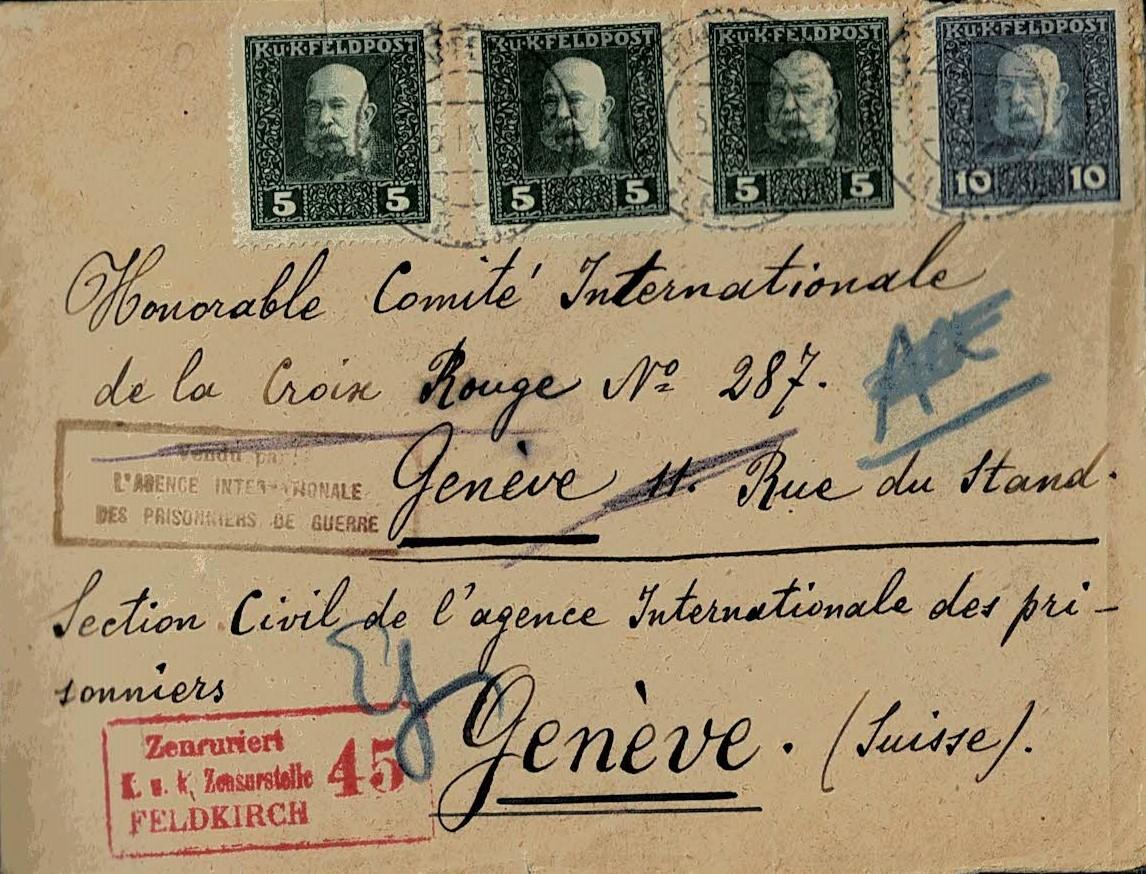 K.u.K.FELDPOST K.u.K.FELDPOST K.u.K.FELDPOST K.u.K.FELDPOST
5 5 5 5 5 5 10 10
Honorable Comité Internationale
de la Croix Rouge Nº 287.
Genève 11. Rue du Stand.
Vendu par
L'AGENCE INTERNATIONALE
DES PRISONNIERS DE GUERRE
Section Civil de l'agence Internationale des pri-
sonniers
Genève. (Suisse).
Zensuriert
K. u. k. Zensurstelle 45
FELDKIRCH